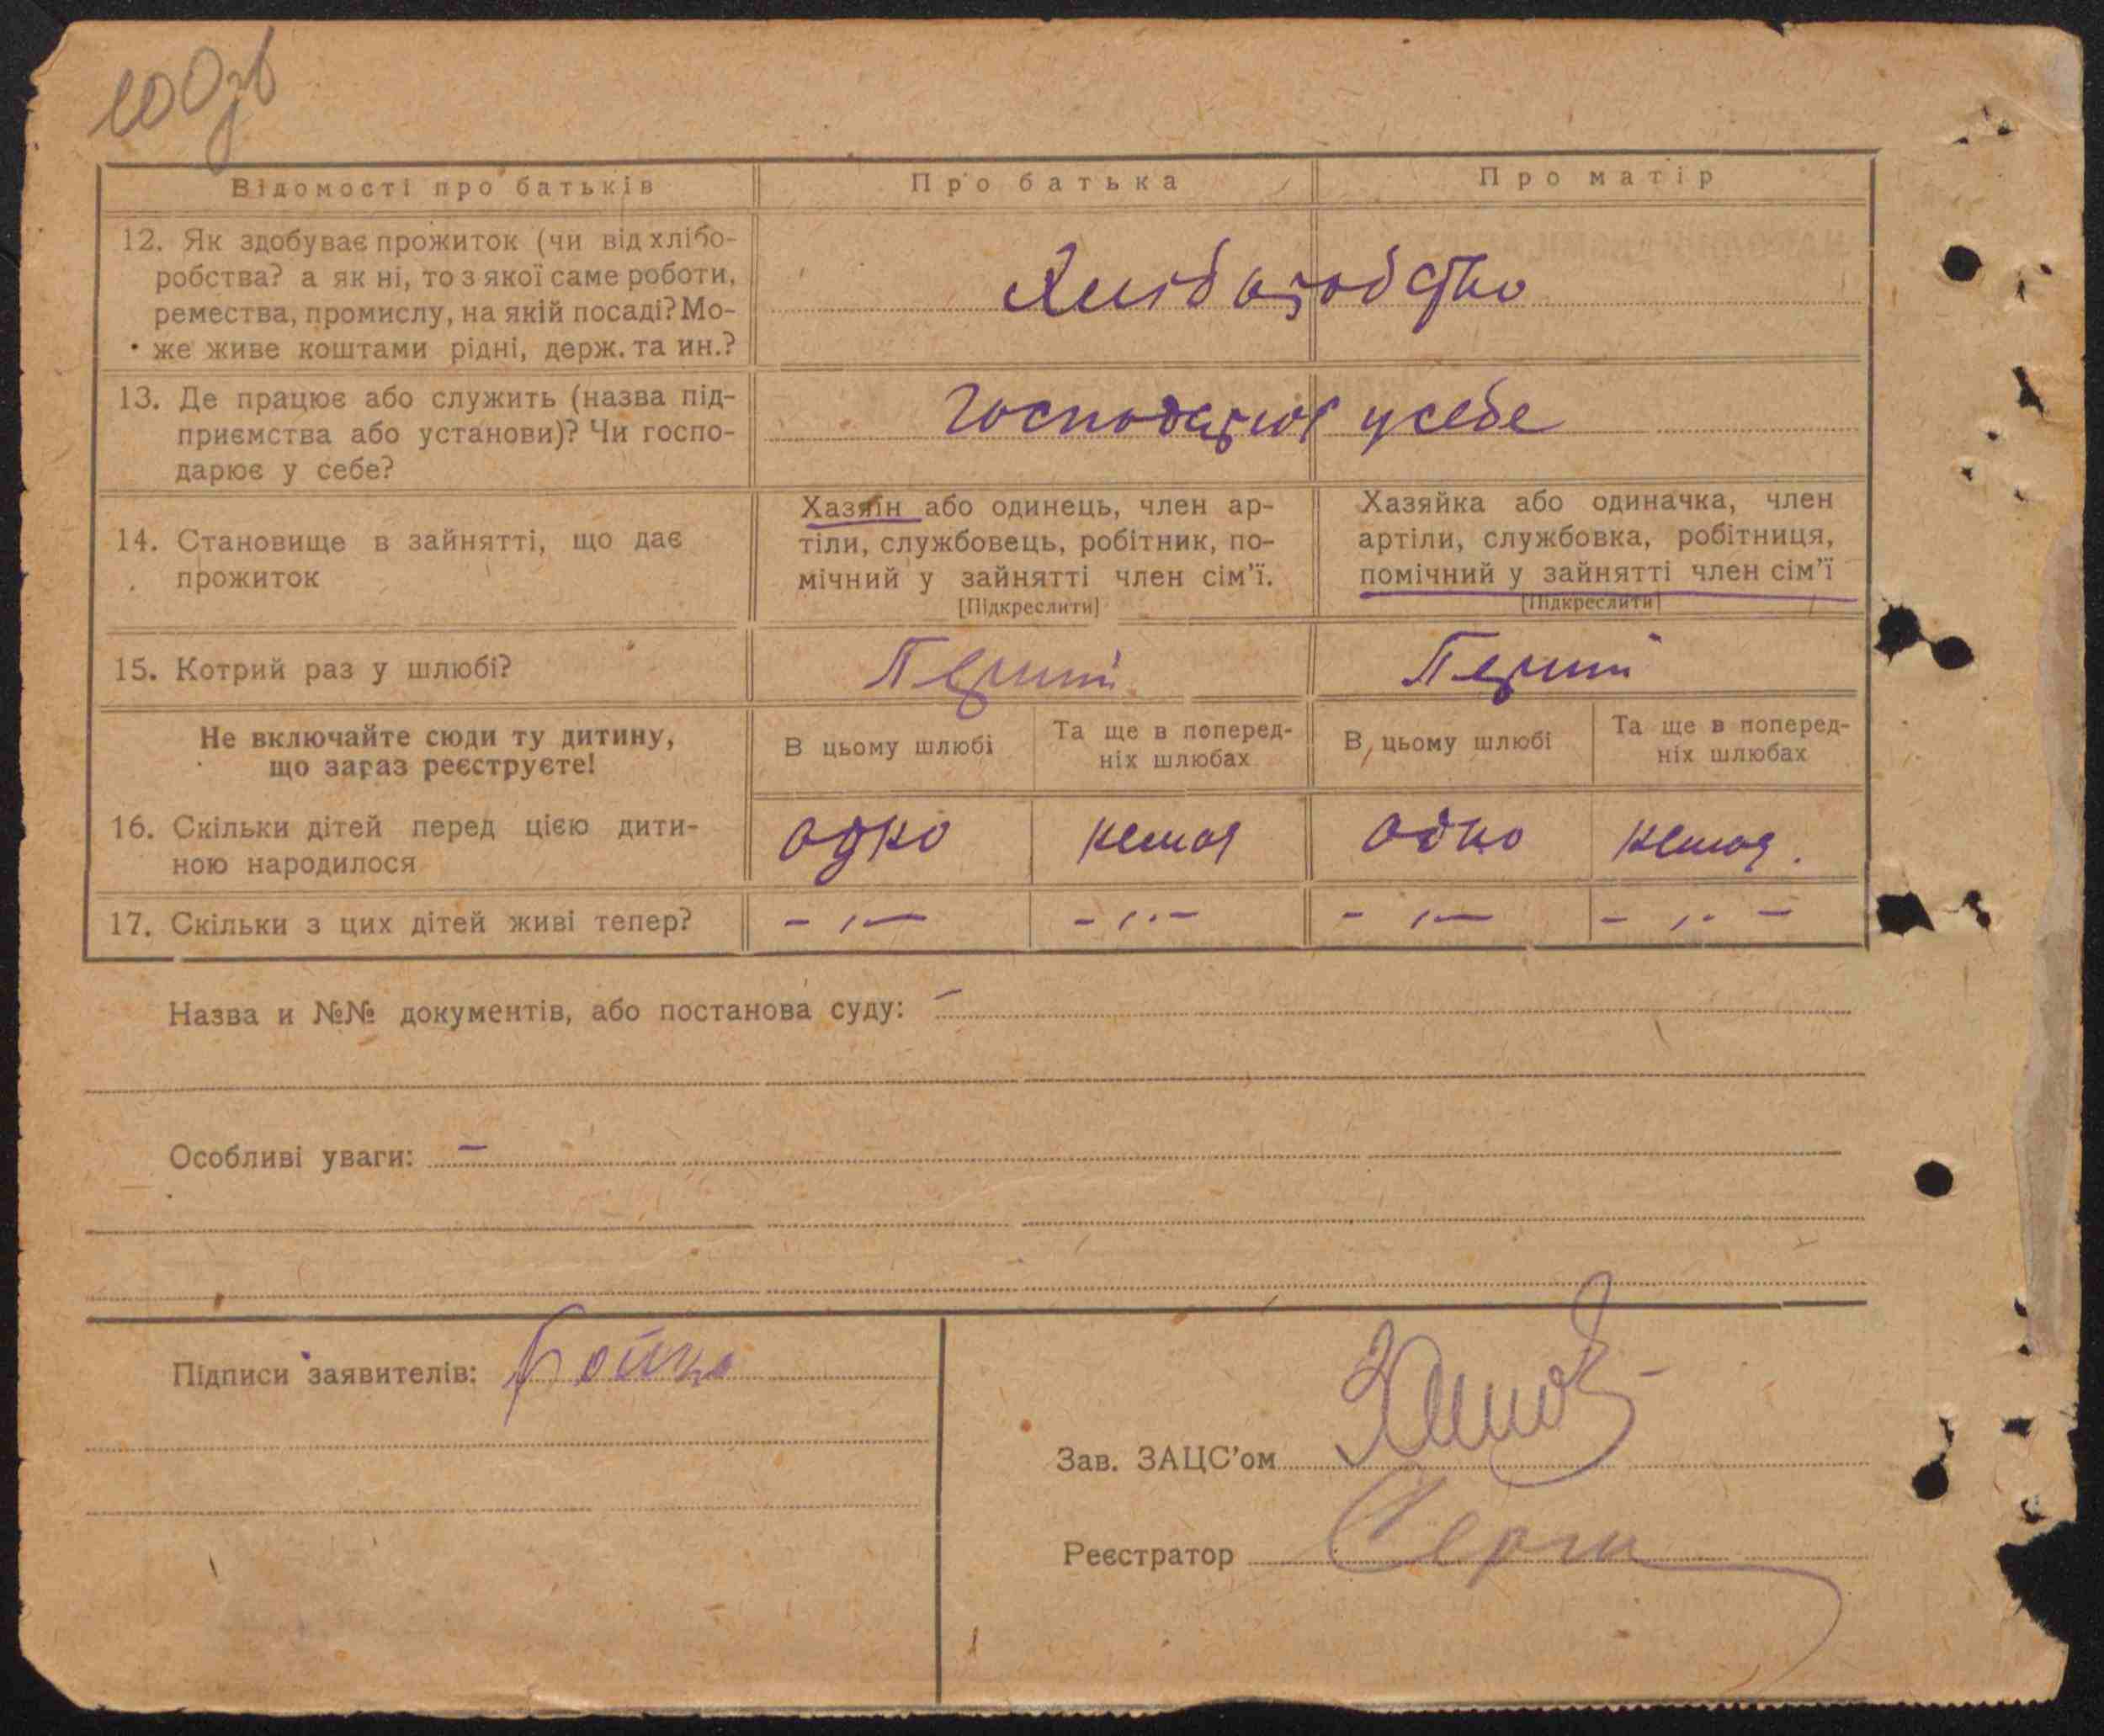 100зв
Відомості про батьків
Про батька
Про матір
12. Як здобуває прожиток (чи від хлібо-
робства? а як ні, то з якої саме роботи,
ремества, промислу, на якій посаді? Мо-
же живе коштами рідні, держ. та ин.?
Хліборобство
13. Де працює або служить (назва під-
приємства або установи)? Чи госпо-
дарює у себе?
господарює у себе
14. Становище в зайнятті, що дає
прожиток
Хазяїн або одинець, член ар-
тіли, службовець, робітник, по-
мічний у зайнятті член сім'ї.
[Підкреслити]
Хазяйка або одиначка, член
артіли, службовка, робітниця,
помічний у зайнятті член сім'ї
[Підкреслити]
15. Котрий раз у шлюбі?
Перший
Перший
Не включайте сюди ту дитину,
що зараз реєструєте!
В цьому шлюбі
Та ще в поперед-
ніх шлюбах
В цьому шлюбі
Та ще в поперед-
ніх шлюбах
16. Скільки дітей перед цією дити-
ною народилося
одно
немая
одно
немая.
17. Скільки з цих дітей живі тепер?
- „ -
- „ -
- „ -
- „ -
Назва и №№ документів, або постанова суду: –
Особливі уваги: –
Підписи заявителів: Бойко
Зав. ЗАЦС'ом
Реєстратор